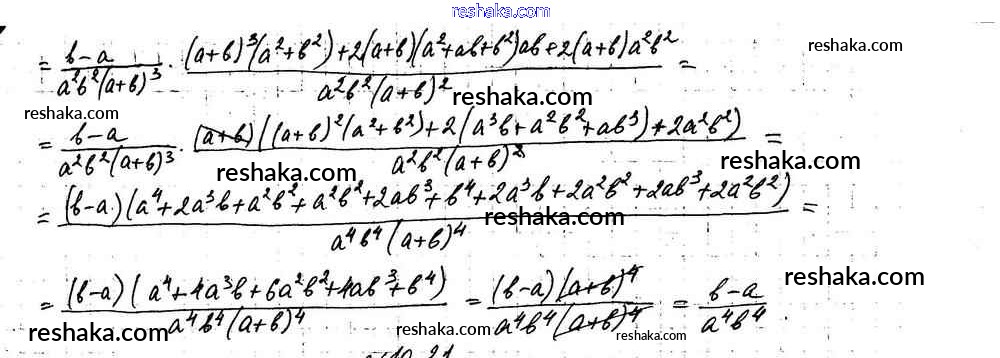 reshaka.com
= \frac{b-a}{a^2b^2(a+b)^3} \cdot \frac{(a+b)^3(a^2+b^2)+2(a+b)(a^2+ab+b^2)ab+2(a+b)a^2b^2}{a^2b^2(a+b)^2} =
reshaka.com
reshaka.com
reshaka.com
= \frac{b-a}{a^2b^2(a+b)^3} \cdot \frac{(a+b)((a+b)^2(a^2+b^2)+2(a^3b+a^2b^2+ab^3)+2a^2b^2)}{a^2b^2(a+b)^2} =
reshaka.com
reshaka.com
= \frac{(b-a)(a^4+2a^3b+a^2b^2+a^2b^2+2ab^3+b^4+2a^3b+2a^2b^2+2ab^3+2a^2b^2)}{a^4b^4(a+b)^4} =
reshaka.com
reshaka.com
reshaka.com
= \frac{(b-a)(a^4+4a^3b+6a^2b^2+4ab^3+b^4)}{a^4b^4(a+b)^4} = \frac{(b-a)(a+b)^4}{a^4b^4(a+b)^4} = \frac{b-a}{a^4b^4}.
reshaka.com
reshaka.com
reshaka.com